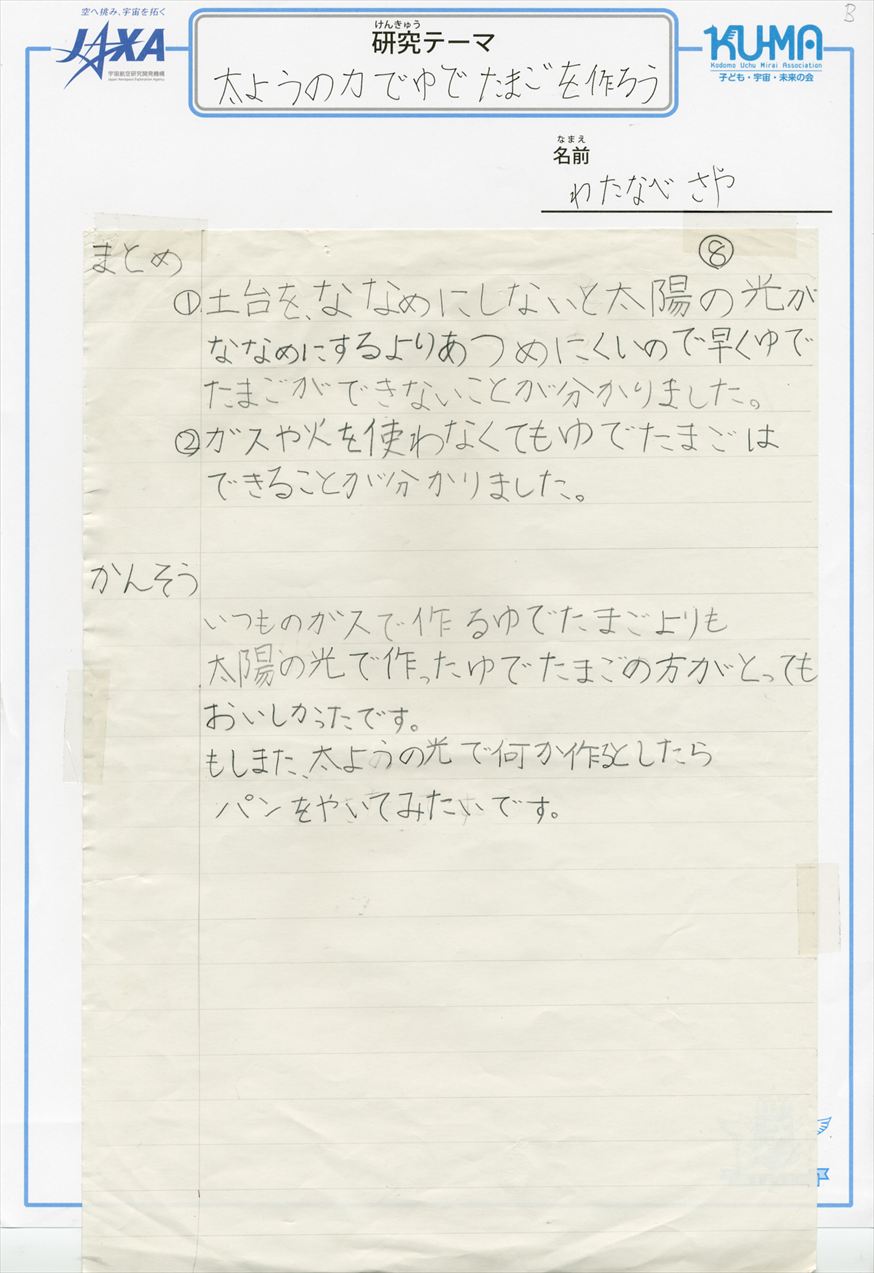 空へ挑み、宇宙を拓く
JAXA
宇宙航空研究開発機構
Japan Aerospace Exploration Agency
けんきゅう
研究テーマ
太ようの力でゆでたまごを作ろう
KU-MA
Kodomo Uchu Mirai Association
子ども・宇宙・未来の会
B
なまえ
名前
わたなべ さや
⑧
まとめ
①土台を、ななめにしないと太陽の光が
ななめにするよりあつめにくいので早くゆで
たまごができないことが分かりました。
②ガスや火を使わなくてもゆでたまごは
できることが分かりました。
かんそう
いつものガスで作るゆでたまごよりも
太陽の光で作ったゆでたまごの方がとっても
おいしかったです。
もしまた、太ようの光で何か作るとしたら
パンをやいてみたいです。